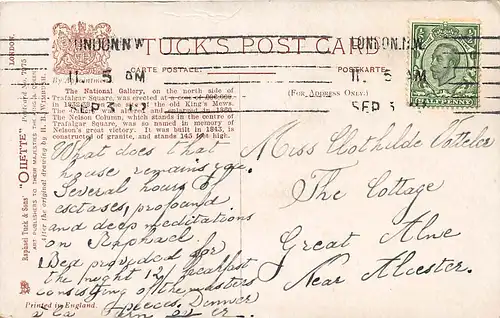 LONDON. N.W
11. 5 AM
SEP 3
LONDON. N.W.
11. 5 AM
SEP 3
TUCK'S POST CARD
CARTE POSTALE
POSTKARTE
By Appointment
(FOR ADDRESS ONLY.)
HALFPENNY
The National Gallery, on the north side of
Trafalgar Square, was erected at a cost of
in the old King's Mews.
and enlarged in 1860.
The Nelson Column, which stands in the centre of
Trafalgar Square, was so named in memory of
Nelson's great victory. It was built in 1843, is
constructed of granite, and stands 145 feet high.
What does that
house remains you.
Several hours of
esctases, profound
and deep meditations
on Raphael.
Bed provided for
the night 12/ breakfast
consisting of the masters
pieces. Dinner
Miss Clothilde
The Cottage
Great Alne
Near Alcester.
LONDON.
"OILETTE"
Raphael Tuck & Sons'
ART PUBLISHERS TO THEIR MAJESTIES THE KING & QUEEN
After the original drawing by H. B.
Printed in England.